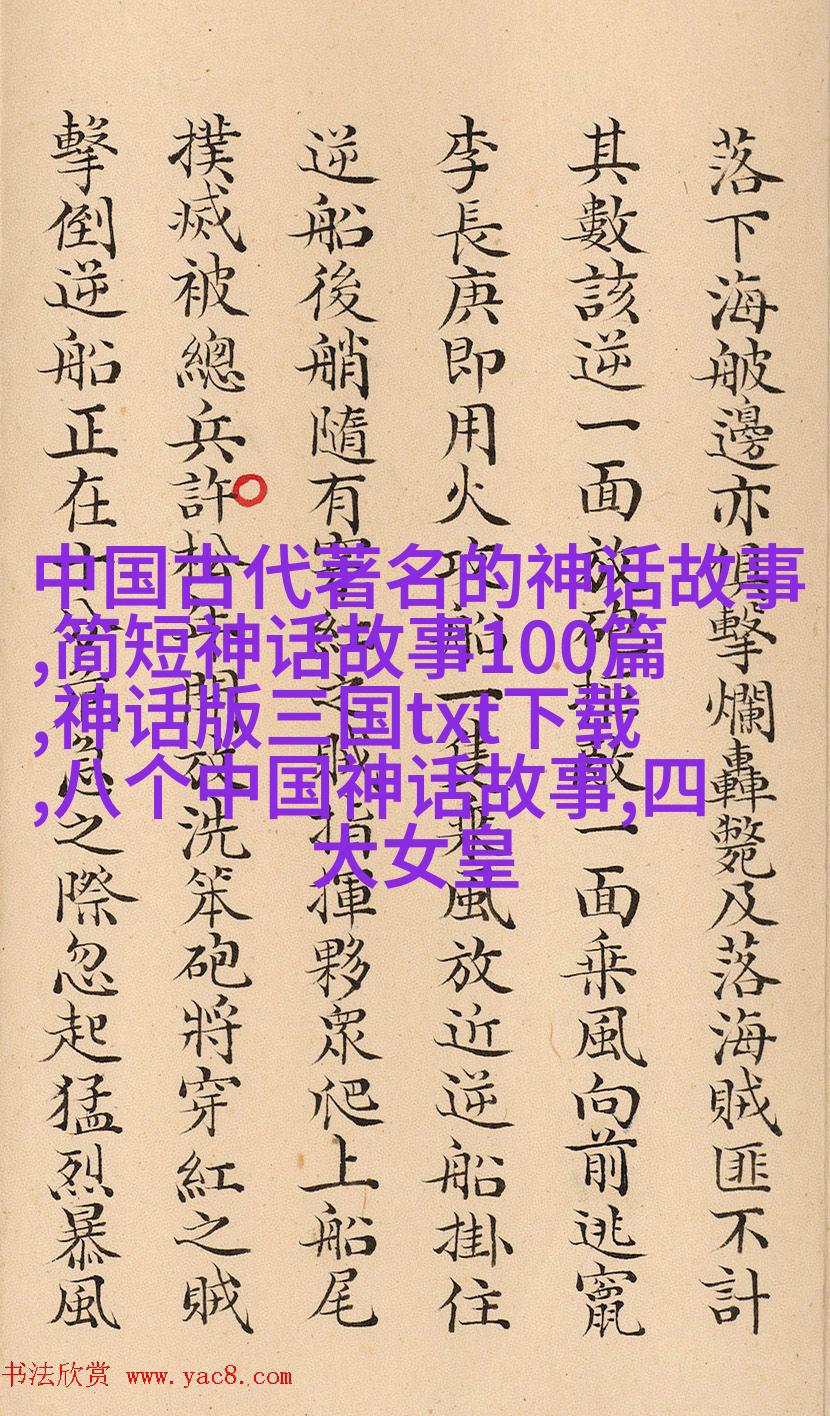 落下海船邊亦俱擊爛轟斃及落海賊匪不計
其數該逆一面放砲拒敵一面乘風向前逃竄
李長庚即用火攻船一隻乘風放近逆船掛住
逆船後艄隨有穿紅之賊指揮夥眾爬上船尾
撲滅被總兵許松年開放洗笨砲將穿紅之賊
擊倒逆船正在十分危急之際忽起猛烈暴風
中国古代著名的神话故事
,简短神话故事100篇
,神话版三国txt下载
,八个中国神话故事,四
大女皇
书法欣赏 www.yac8.com